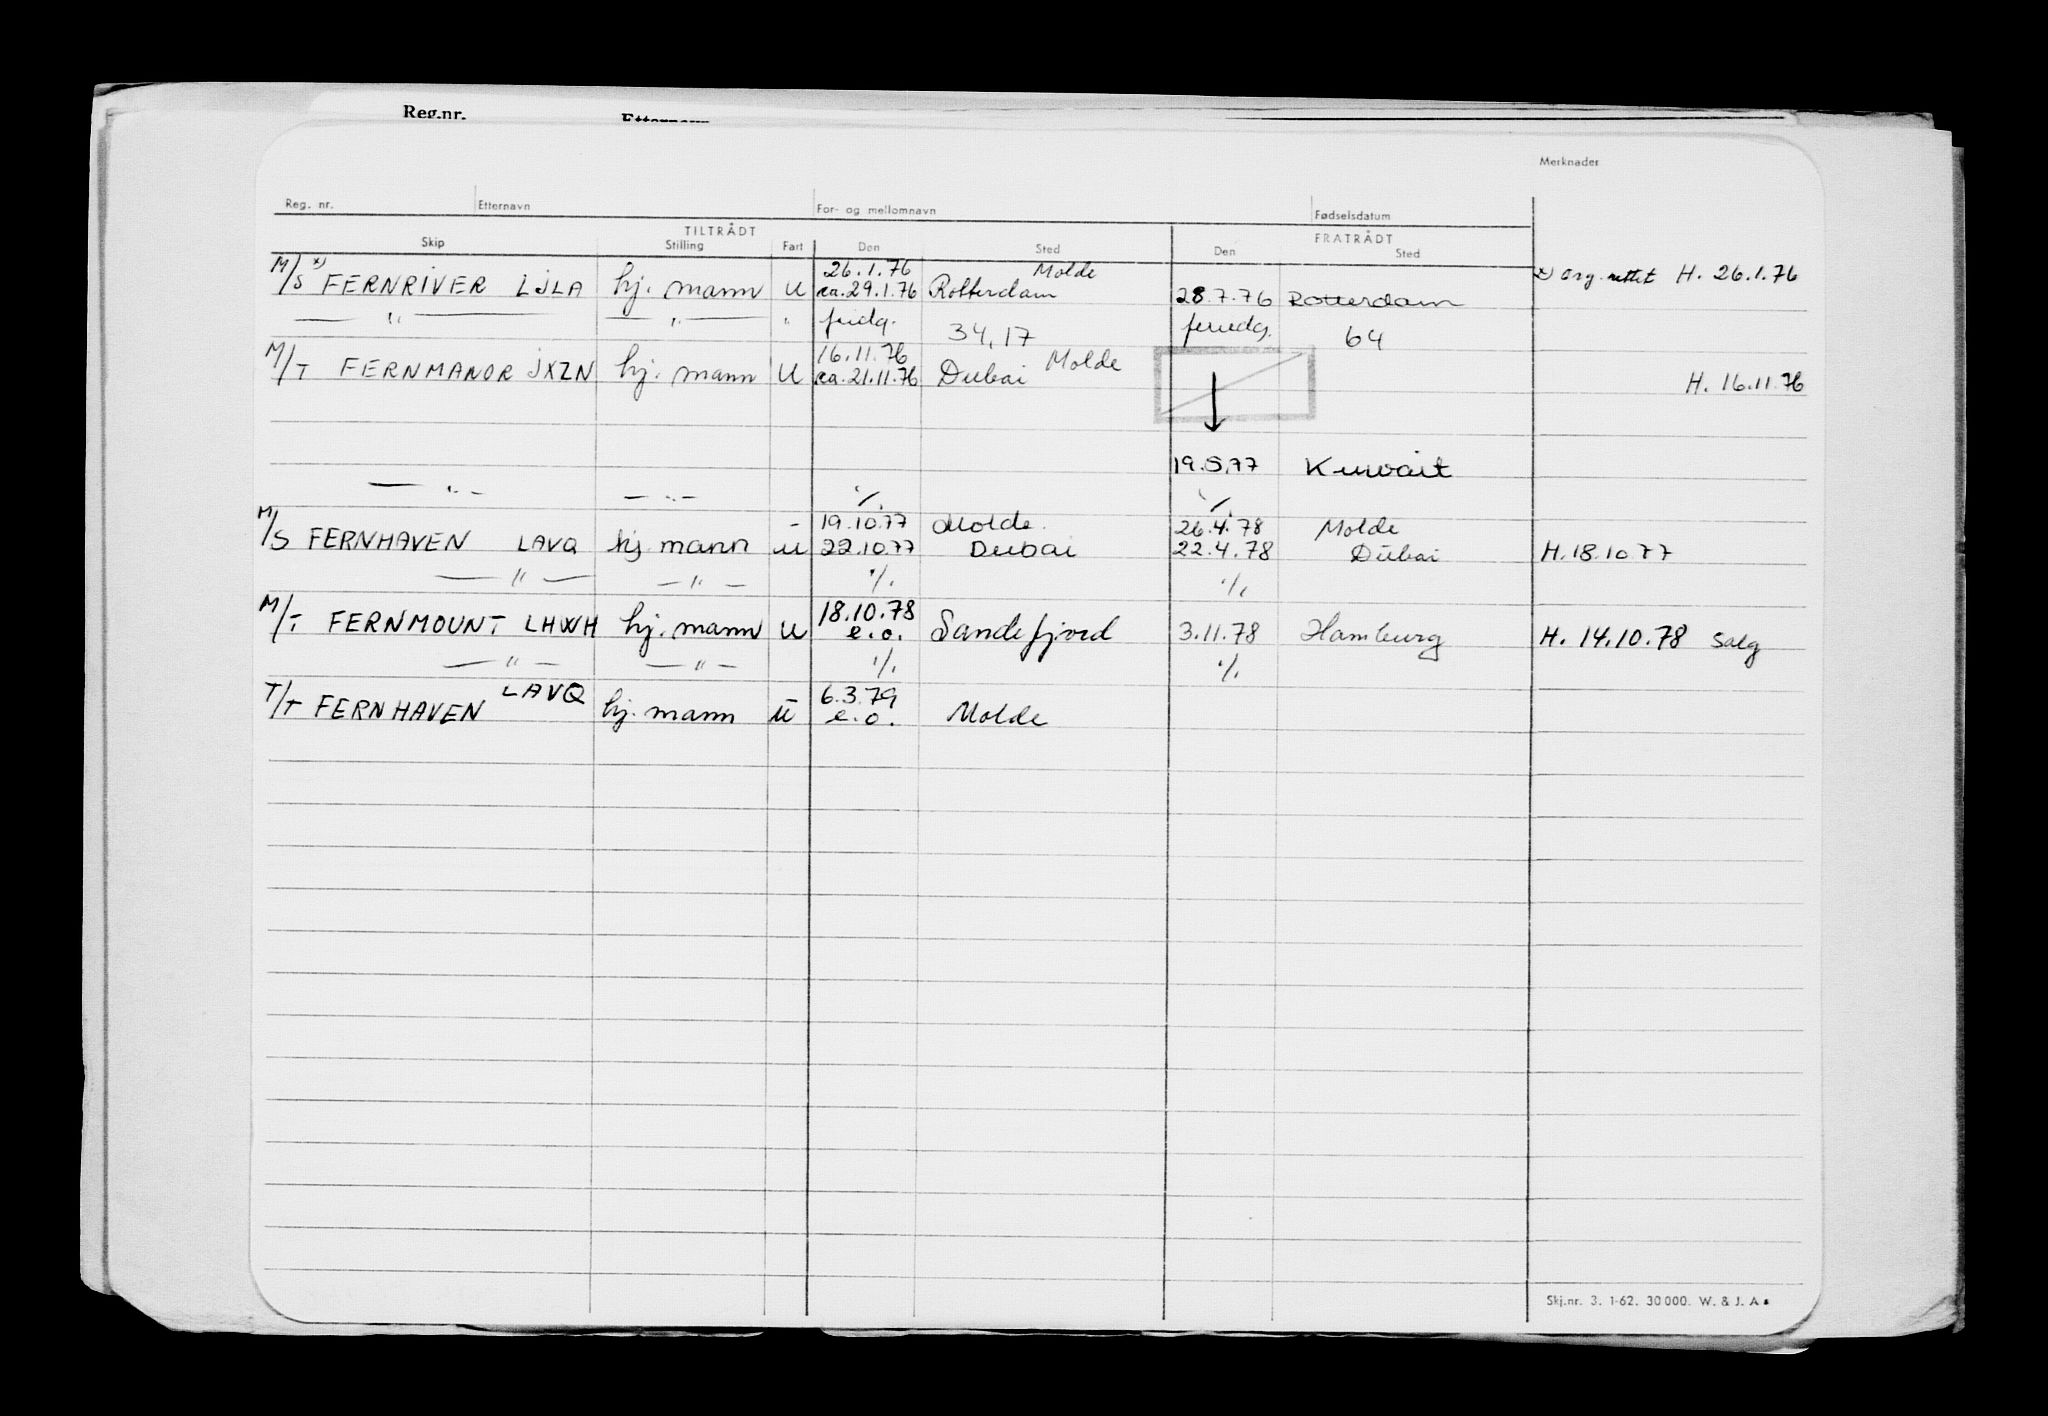 Reg.nr. Etternavn
Merknader
Reg. nr. Etternavn For- og mellomnavn Fødselsdatum
TILTRÅDT FRATRÅDT
Skip Stilling Fart Den Sted Den Sted
26.1.76 Molde
M/S x) FERNRIVER LJLA hj. mann u ca. 29.1.76 Rotterdam 28.7.76 Rotterdam x) org. rettet H. 26.1.76
— " — — " — " 34,17 64
16.11.76 Molde
M/T FERNMANOR JXZN hj. mann U ca. 21.11.76 Dubai H. 16.11.76
19.5.77 Kuwait
— " — — " — ·/. ·/.
- 19.10.77 Molde 26.4.78 Molde
M/S FERNHAVEN LAVQ hj. mann u 22.10.77 Dubai 22.4.78 Dubai H.18.10.77
— " — — " — ·/. ·/.
18.10.78
M/T FERNMOUNT LHWH hj. mann u e.o. Sandefjord 3.11.78 Hamburg H. 14.10.78 salg
— " — — " — ·/. ·/.
LAVQ 6.3.79
T/T FERNHAVEN hj. mann u e.o. Molde
Skj.nr. 3. 1-62. 30 000. W. & J. A